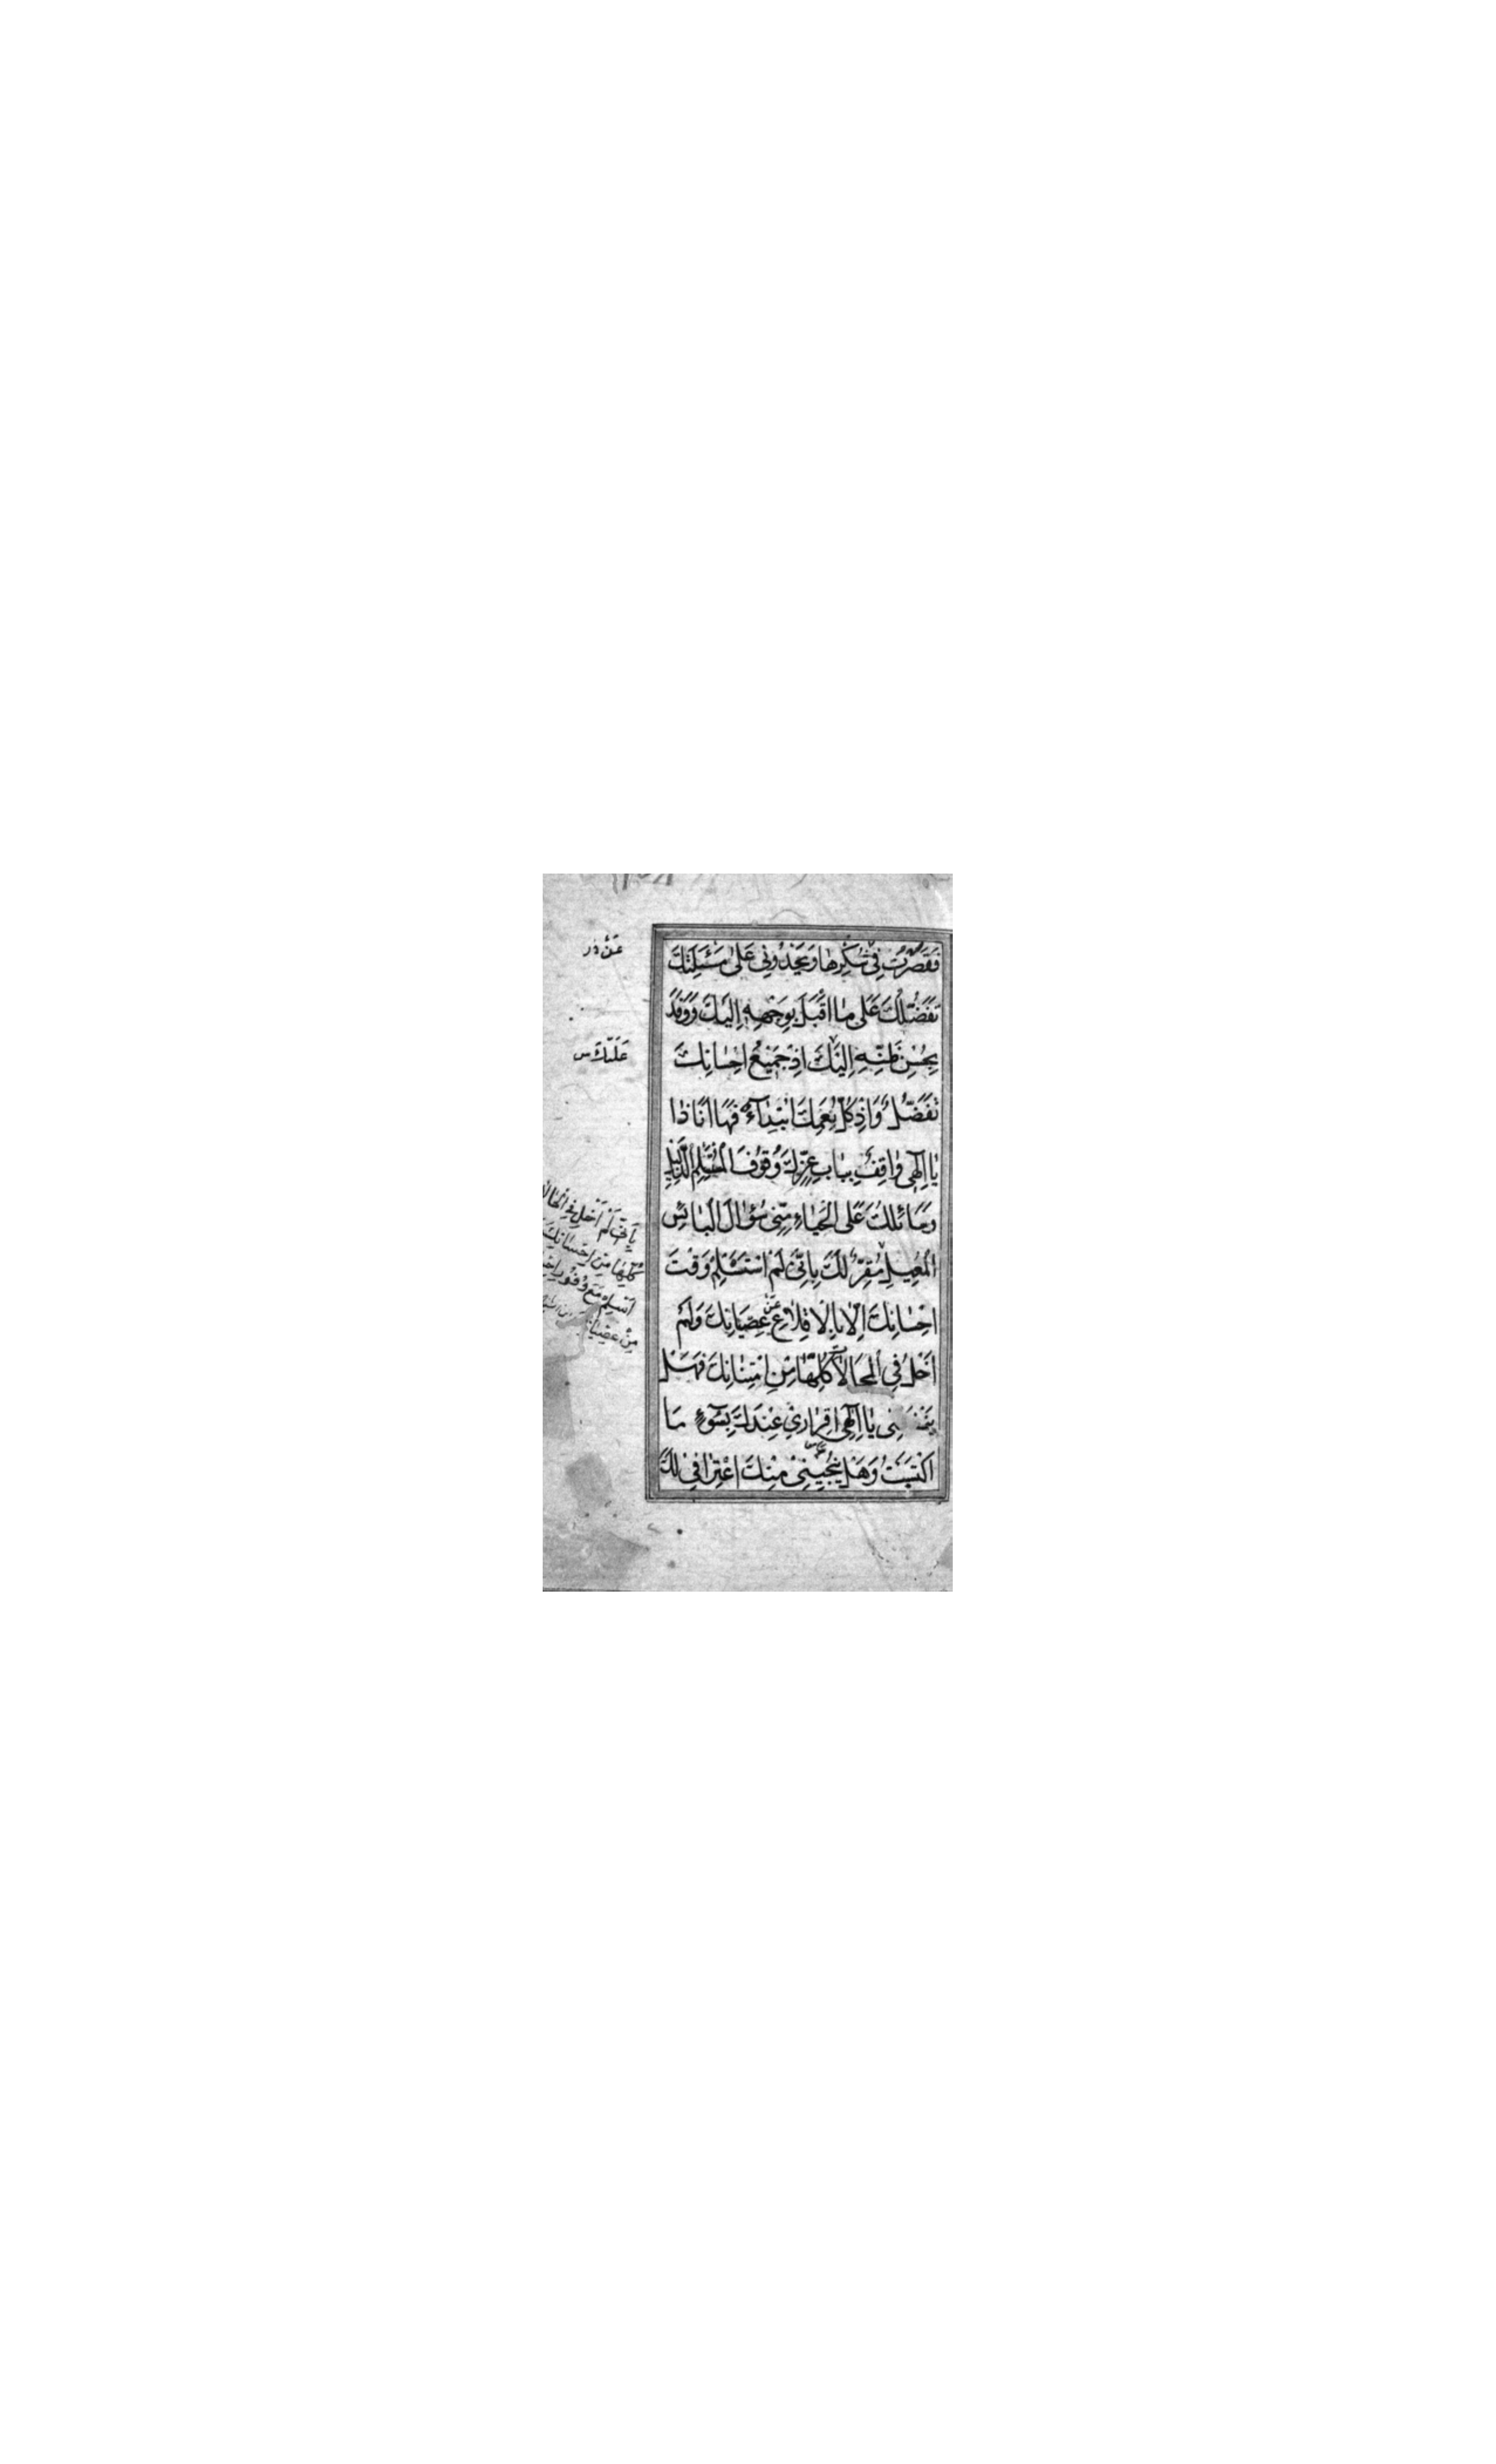 فَقَصَّرْتُ فِي شُكْرِهَا وَيَحْدُونِي عَلَى مَسْئَلَتِكَ
تَفَضُّلُكَ عَلَى مَا اَقْبَلَ بِوَجْهِهِ اِلَيْكَ وَوَفَدَ
بِحُسْنِ ظَنِّهِ اِلَيْكَ اِذْ جَمِيعُ اِحْسَانِكَ
تَفَضُّلٌ وَاِذْ كُلُّ نِعَمِكَ ابْتِدَآءٌ فَهَا اَنَا ذَا
يَا اِلٰهِي وَاقِفٌ بِبَابِ عِزِّكَ وُقُوفَ الْمُسْتَسْلِمِ الذَّلِيلِ
وَسَائِلُكَ عَلَى الْحَيَاءِ مِنِّي سُؤَالَ الْبَائِسِ
الْمُعِيلِ مُقِرٌّ لَكَ بِاَنِّي لَمْ اَسْتَسْلِمْ وَقْتَ
اِحْسَانِكَ اِلَّا بِالْاِقْلَاعِ عَنْ عِصْيَانِكَ وَلَمْ
اَخْلُ فِي الْحَالَاتِ كُلِّهَا مِنِ امْتِنَانِكَ فَهَلْ
يَنْفَعُنِي يَا اِلٰهِي اِقْرَارِي عِنْدَكَ بِسُوٓءِ مَا
اكْتَسَبْتُ وَهَلْ يُنْجِينِي مِنْكَ اعْتِرَافِي لَكَ
عَلَيْكَ س
بِاَنِّي لَمْ اَخْلُ فِي الْحَالَا
كُلِّهَا مِنْ اِحْسَانِكَ
اَسْلَمْ مَعَ وُفُورِ
مِنْ